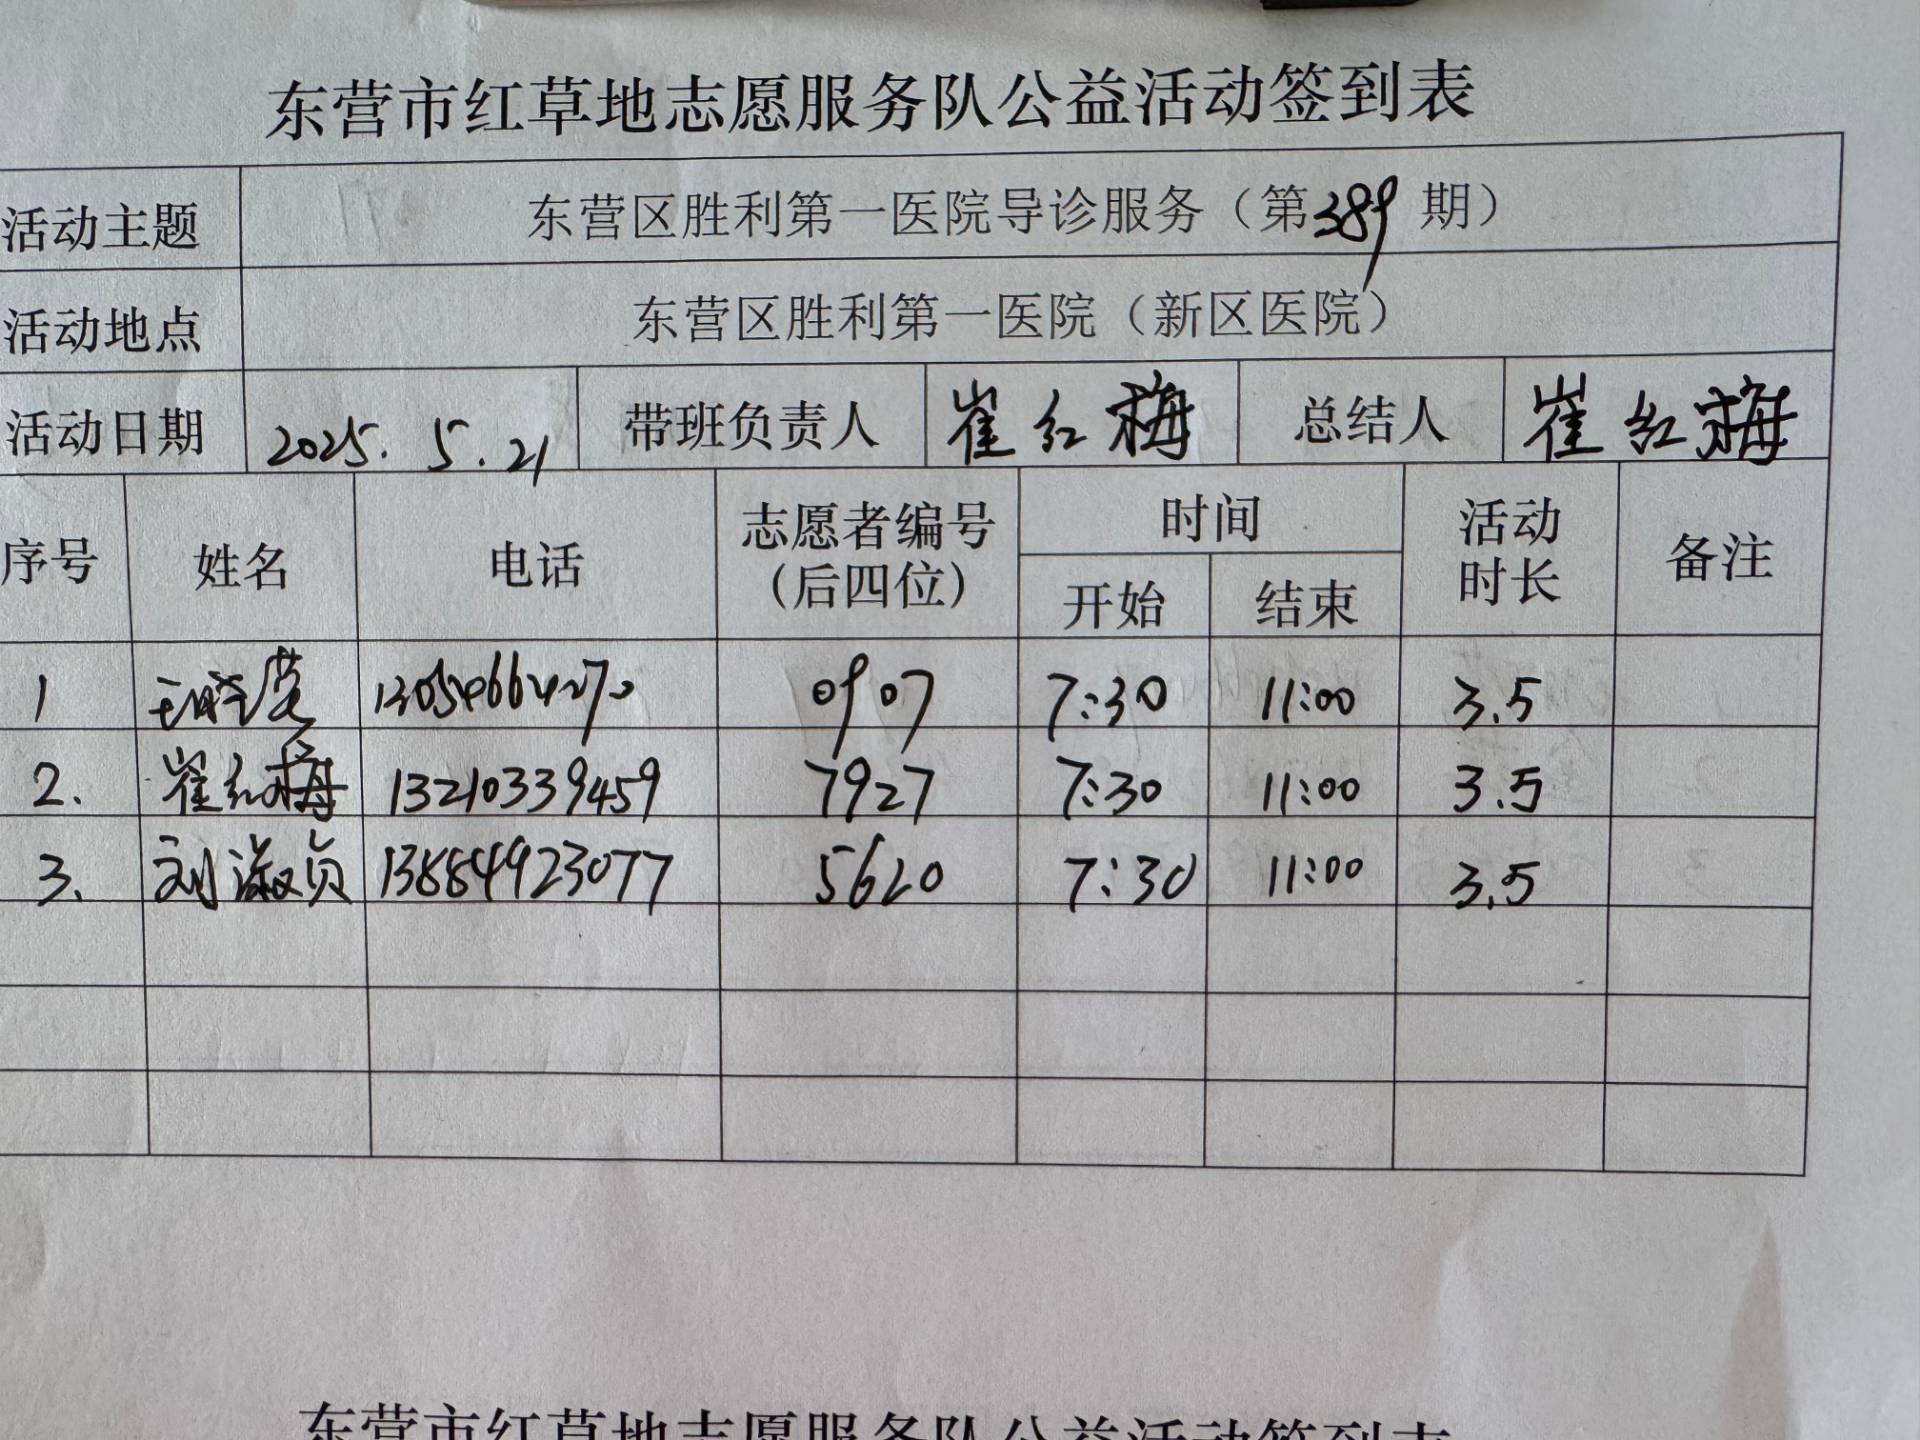 东营市红草地志愿服务队公益活动签到表
活动主题 东营区胜利第一医院导诊服务（第389期）
活动地点 东营区胜利第一医院（新区医院）
活动日期 2025.5.21 带班负责人 崔红梅 总结人 崔红梅
序号 姓名 电话 志愿者编号（后四位） 时间 开始 结束 活动时长 备注
1 0907 7:30 11:00 3.5
2. 崔红梅 13210339459 7927 7:30 11:00 3.5
3. 刘淑贞 13884923077 5620 7:30 11:00 3.5
东营市红草地志愿服务队公益活动签到表